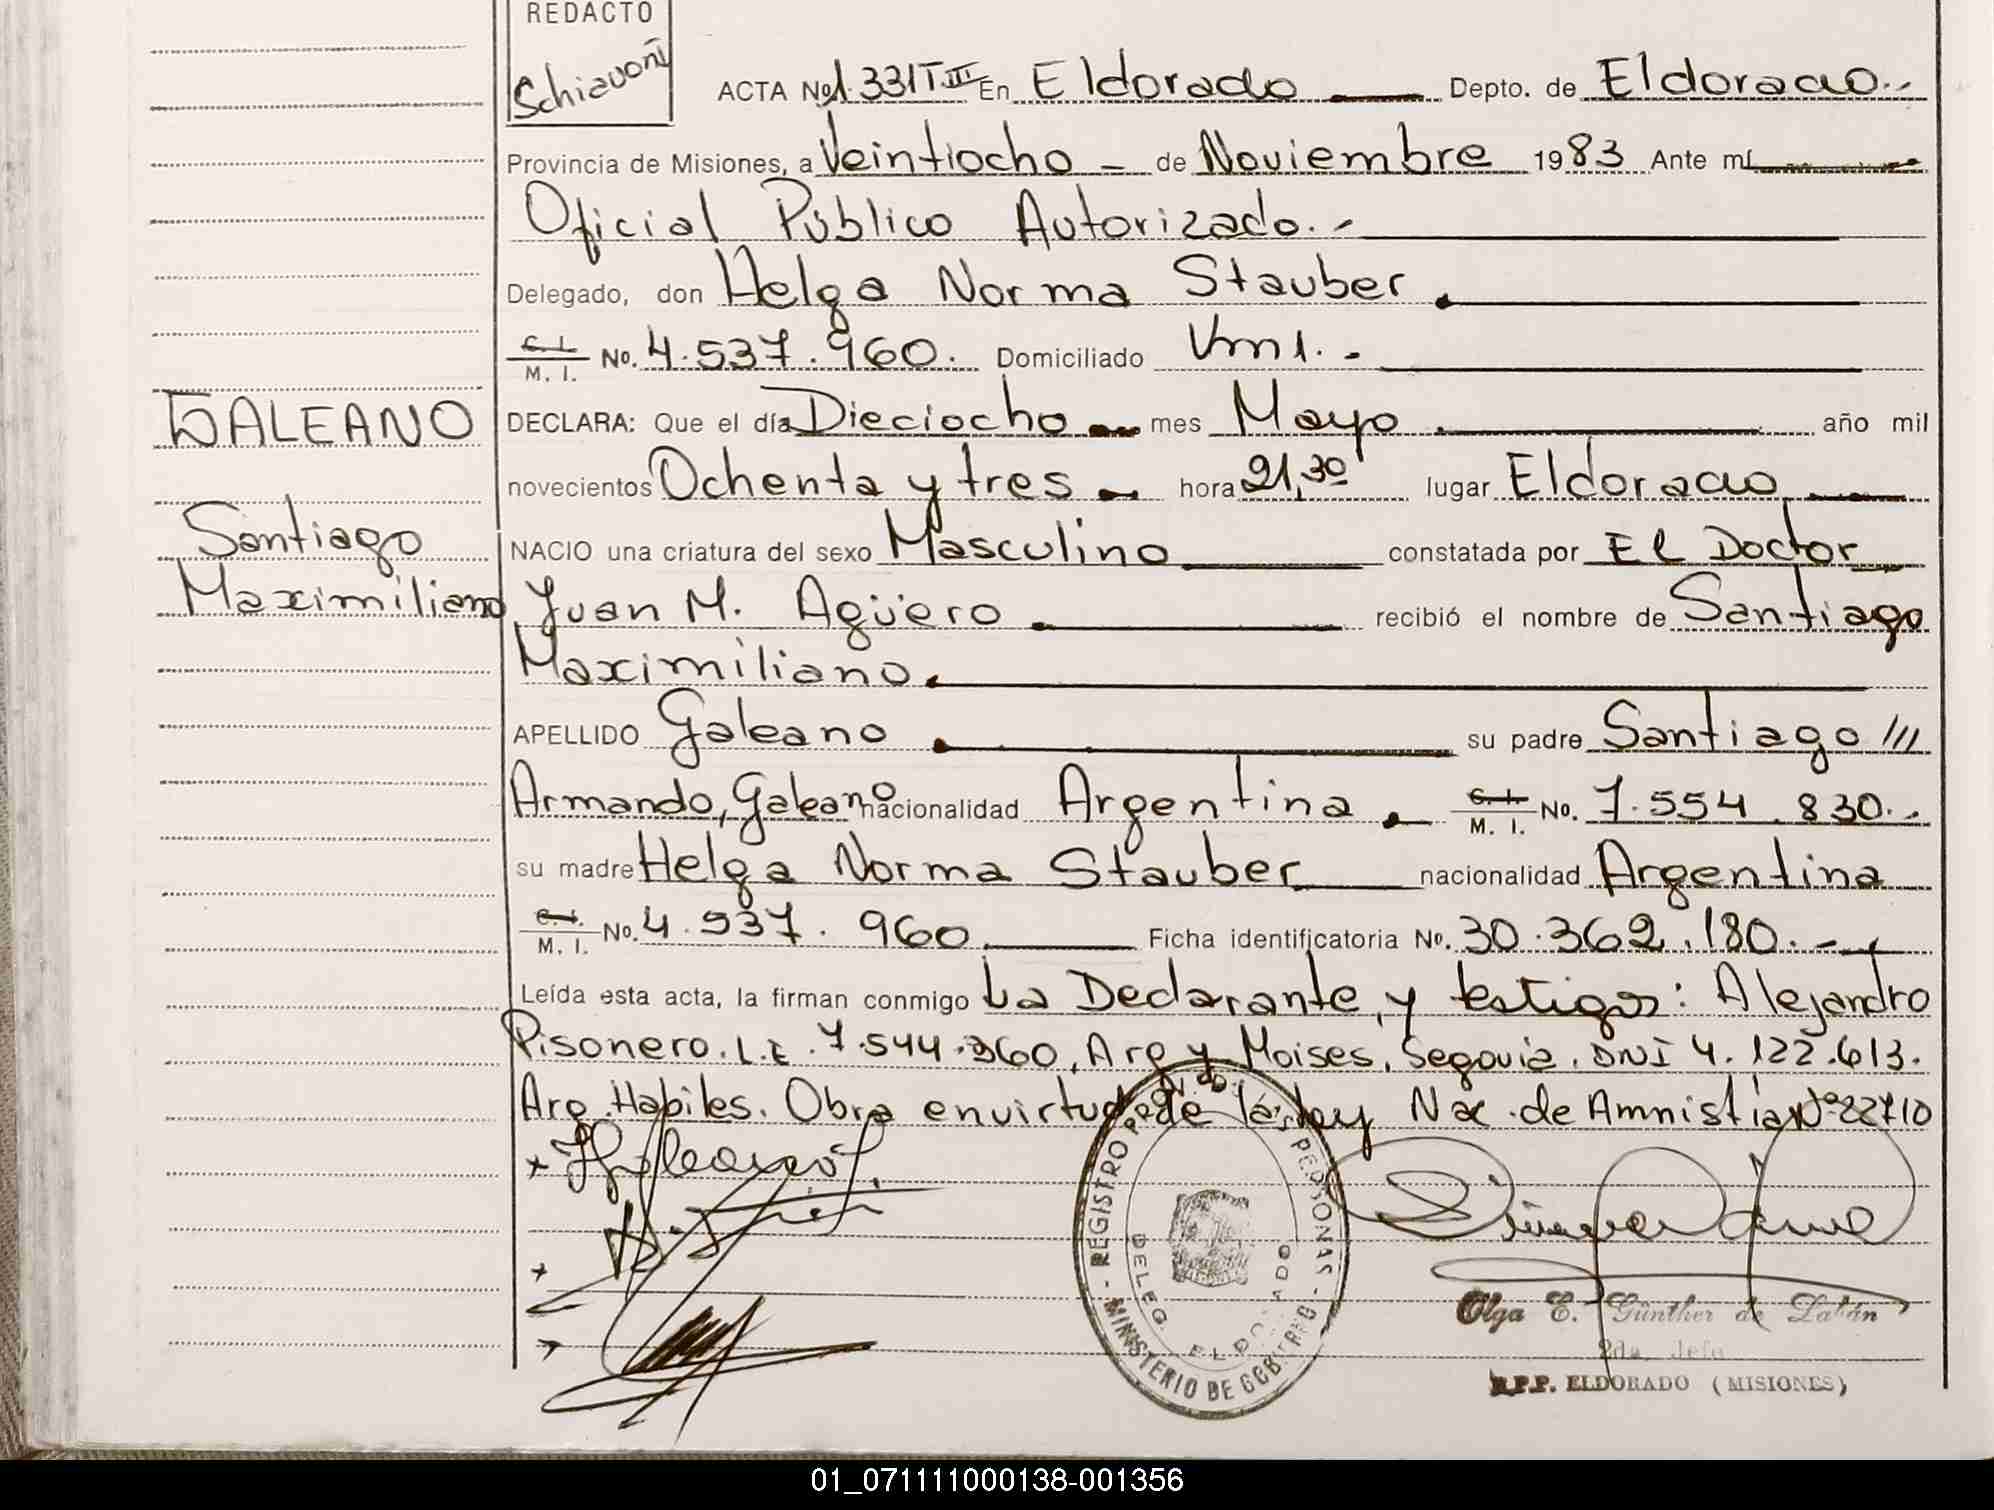 REDACTO
Schiavoni
ACTA No 1.331 T III En Eldorado Depto. de Eldorado.-
Provincia de Misiones, a Veintiocho - de Noviembre 1983 Ante mí
Oficial Público Autorizado.-
Delegado, don Helga Norma Stauber.
C. I. M. I. No. 4.537.960. Domiciliado Km 1. -
GALEANO
DECLARA: Que el día Dieciocho mes Mayo año mil
novecientos Ochenta y tres hora 21,30 lugar Eldorado
Santiago
NACIO una criatura del sexo Masculino constatada por El Doctor
Maximiliano
Juan M. Agüero recibió el nombre de Santiago
Maximiliano.
APELLIDO Galeano su padre Santiago ///
Armando, Galeano nacionalidad Argentina C. I. M. I. No. 7.554.830.-
su madre Helga Norma Stauber nacionalidad Argentina
C. I. M. I. No. 4.537.960 Ficha identificatoria No. 30.362.180.-
Leída esta acta, la firman conmigo La Declarante, y testigos: Alejandro
Pisonero. L.E. 7.544.360, Arg y Moises, Segovia. DNI 4.122.613.
Arg. Habiles. Obra en virtud de la Ley Nac. de Amnistía Nº 22710
REGISTRO P PERSONAS
DELEG. ELDORADO
MINISTERIO DE GOBIERNO
Olga E. Günther de Labán
2da. Jefe
R.P.P. ELDORADO (MISIONES)
01_071111000138-001356